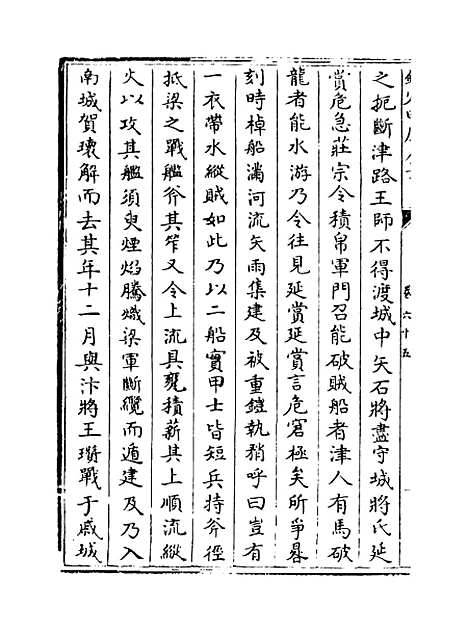 之扼斷津路王師不得渡城中矢石將盡守城將氏延
賞危急莊宗令積帛軍門召能破賊船者津人有馬破
龍者能水游乃令往見延賞延賞言危窘極矣所爭晷
刻時棹船滿河流矢雨集建及被重鎧執矟呼曰豈有
一衣帶水縱賊如此乃以二船實甲士皆短兵持斧徑
抵梁之戰艦斧其笮又令上流具甕積薪其上順流縱
火以攻其艦須臾煙焰騰熾梁軍斷纜而遁建及乃入
南城賀瓌解而去其年十二月與汴將王瓚戰于戚城
卷六十五